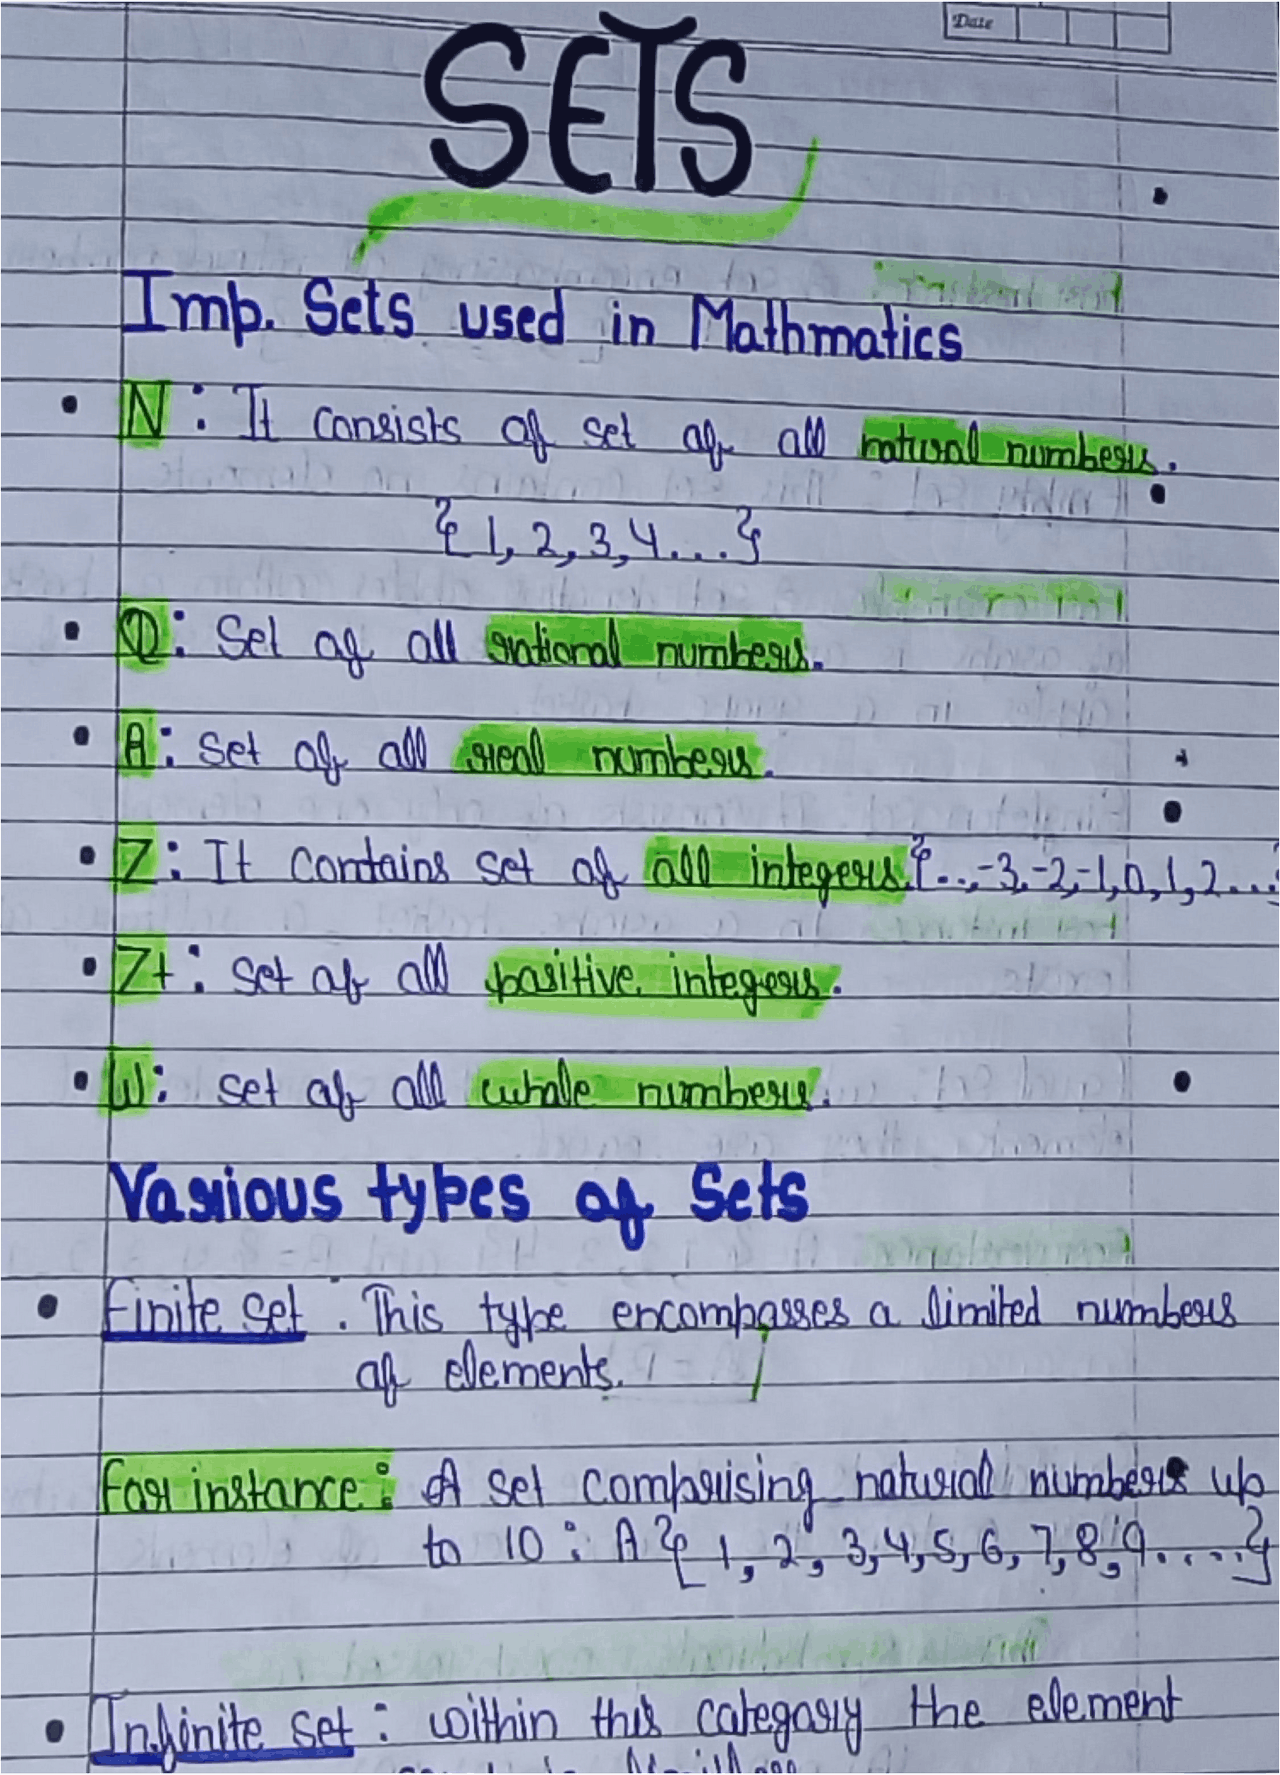 Date
SETS
Imp. Sets used in Mathmatics
• N : It consists of set of all natural numbers.
{ 1, 2, 3, 4 . . . . }
• Q : Set of all rational numbers.
• A : Set of all real numbers.
• Z : It contains set of all integers. { . . , -3, -2, -1, 0, 1, 2 . . . }
• Z+ : Set of all positive integers.
• W : set of all whole numbers.
Various types of Sets
• Finite set : This type encompasses a limited numbers
of elements.
For instance : A set comprising natural numbers up
to 10 : A { 1, 2, 3, 4, 5, 6, 7, 8, 9 . . . . . }
• Infinite set : within this category the element